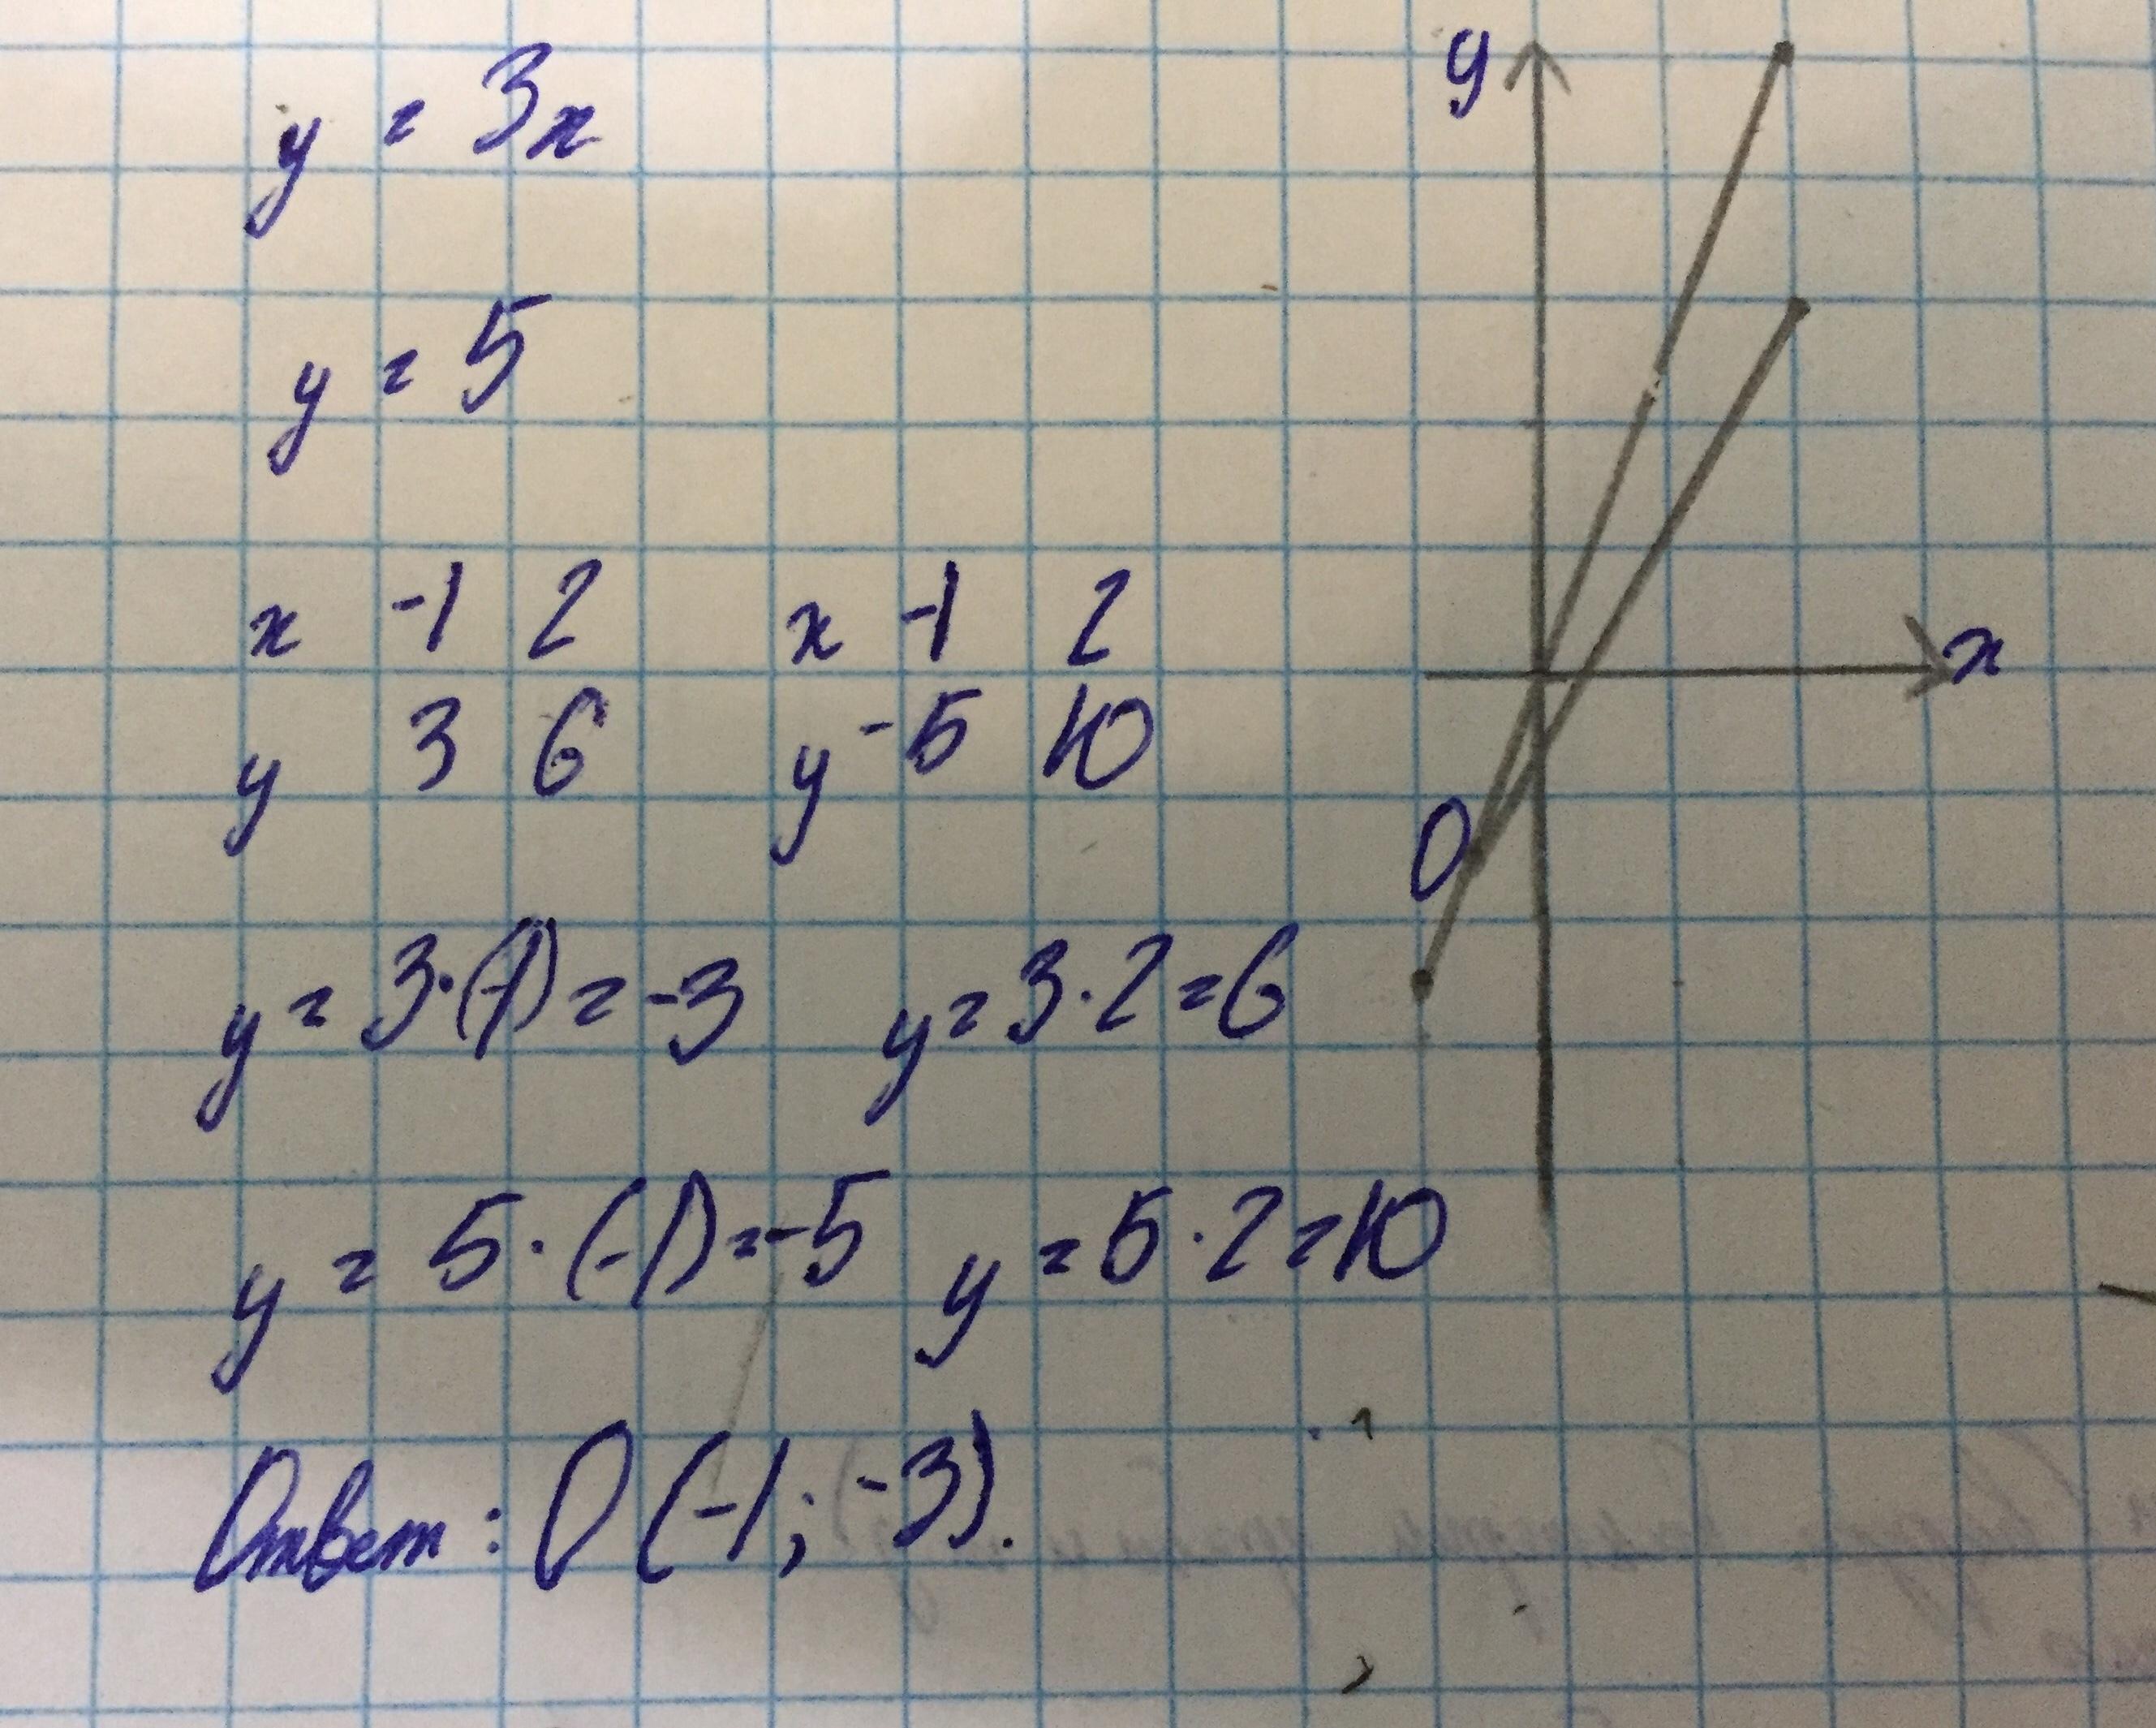 y = 3x
y = 5
x -1 2 x -1 2
y 3 6 y -5 10
y = 3·(-1) = -3 y = 3·2 = 6
y = 5·(-1) = -5 y = 5·2 = 10
Ответ: O (-1; -3).
y
x
O